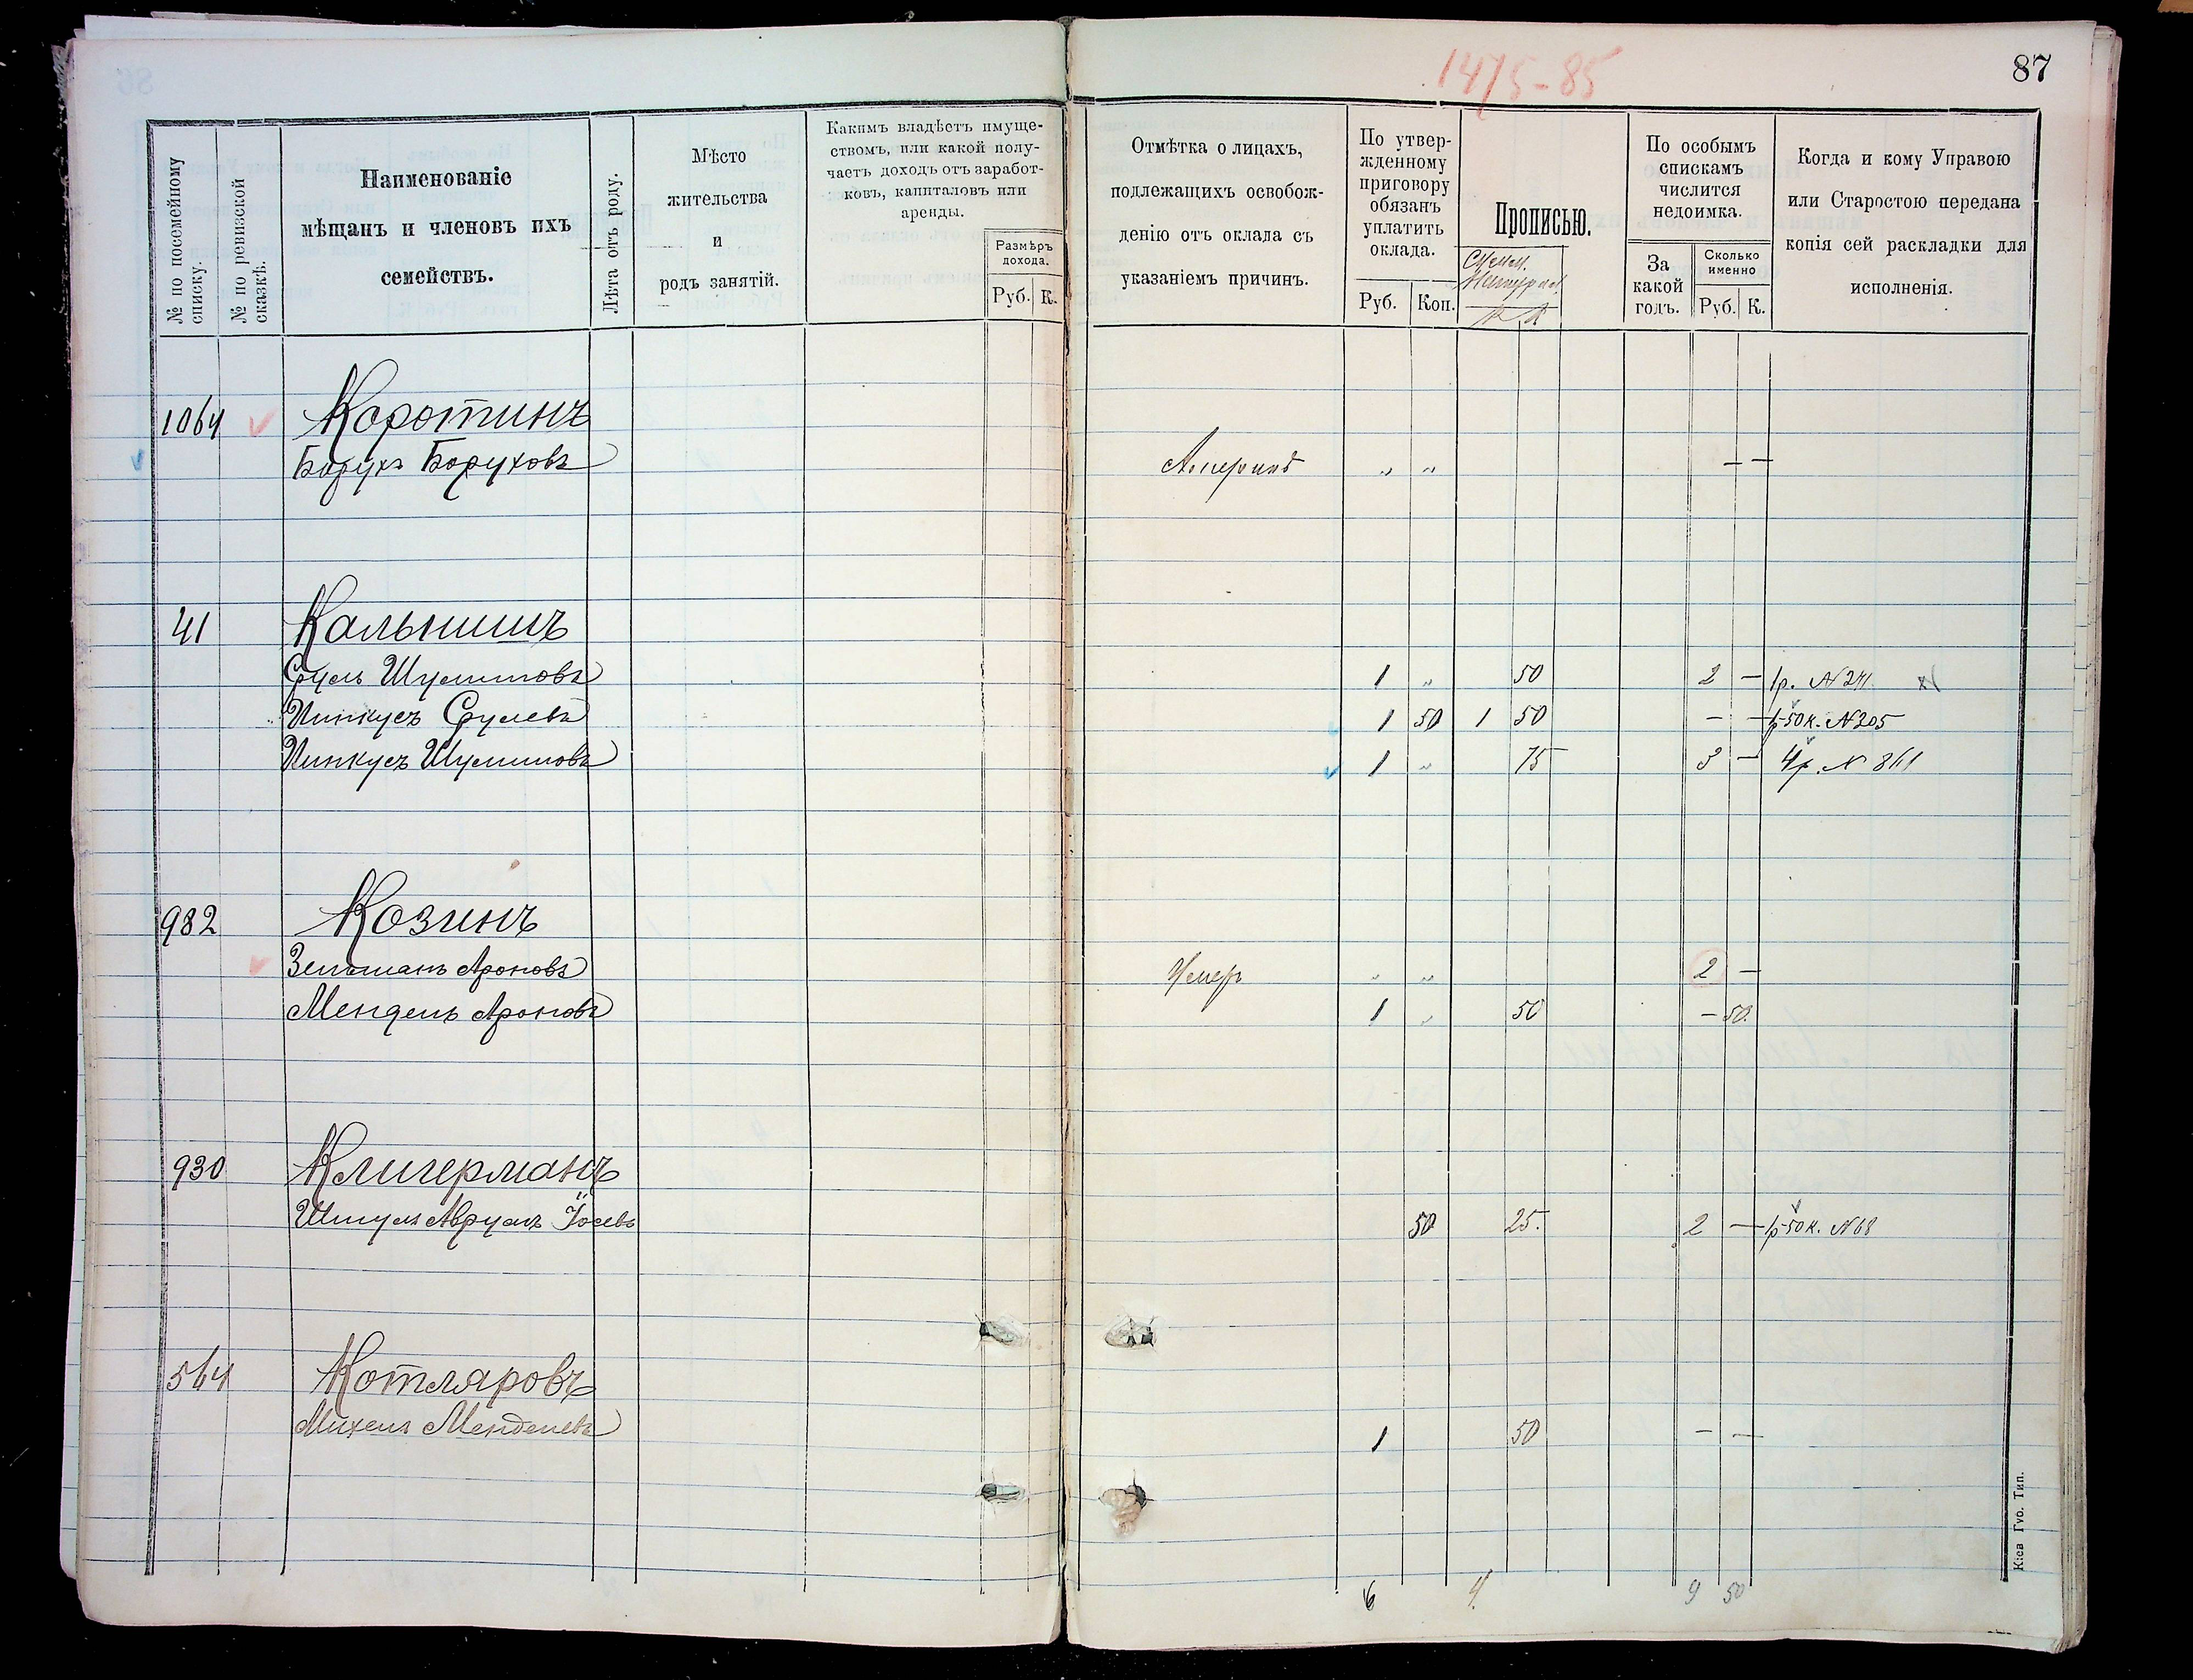 1475-85
87
№ по посемейному списку.
№ по ревизской сказкѣ.
Наименованіе мѣщанъ и членовъ ихъ семействъ.
Лѣта отъ роду.
Мѣсто жительства и родъ занятій.
Какимъ владѣетъ имуще-
ствомъ, или какой полу-
чаетъ доходъ отъ заработ-
ковъ, капиталовъ или
аренды.
Размѣръ дохода.
Руб. К.
Отмѣтка о лицахъ,
подлежащихъ освобож-
денію отъ оклада съ
указаніемъ причинъ.
По утвер-
жденному
приговору
обязанъ
уплатить
оклада.
Руб. Коп.
Прописью.
По особымъ
спискамъ
числится
недоимка.
За какой годъ.
Сколько именно
Руб. К.
Когда и кому Управою
или Старостою передана
копія сей раскладки для
исполненія.
1064 Коротинъ
Борухъ Боруховъ Америкѣ „ „ — —
41 Кальнишъ
Сруль Шулимовъ 1 „ 50 2 — 1р. N 241
Пинкусъ Срулевъ 1 50 1 50 — — 1р 50к. N205
Пинкусъ Шулимовъ 1 „ 75 3 — 4р. N 861
982 Козинъ
Зельманъ Ароновъ Умеръ „ „ 2 —
Мендель Ароновъ 1 „ 50 — 50.
930 Клигерманъ
Шмуль Аврумъ Іосевъ 50 25. 2 — 1р 50к. N68
564 Котляровъ
Михель Менделевъ 1 50 — —
6 4. 9 50
Кіев Губ. Тип.